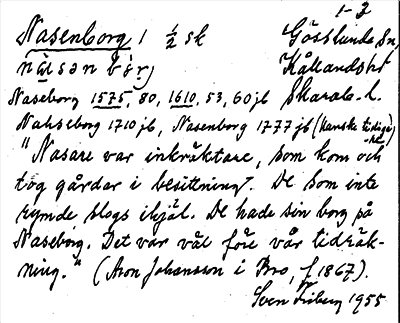 1-3
Nasenborg 1 ½ sk Gösslunda Sn,
nàsən bòrj Kållandshd
Naseborg 1575, 80, 1610, 53, 60 jb Skarab. l.
Nahseborg 1710 jb, Nasenborg 1777 jb (kanske tidiga-
re)
"Nasare var inkräktare, som kom och
tog gårdar i besittning. De som inte
rymde slogs ihjäl. De hade sin borg på
Naseborg. Det var väl före vår tidräk-
ning." (Aron Johansson i Bro, f. 1867).
Sven Friberg 1955